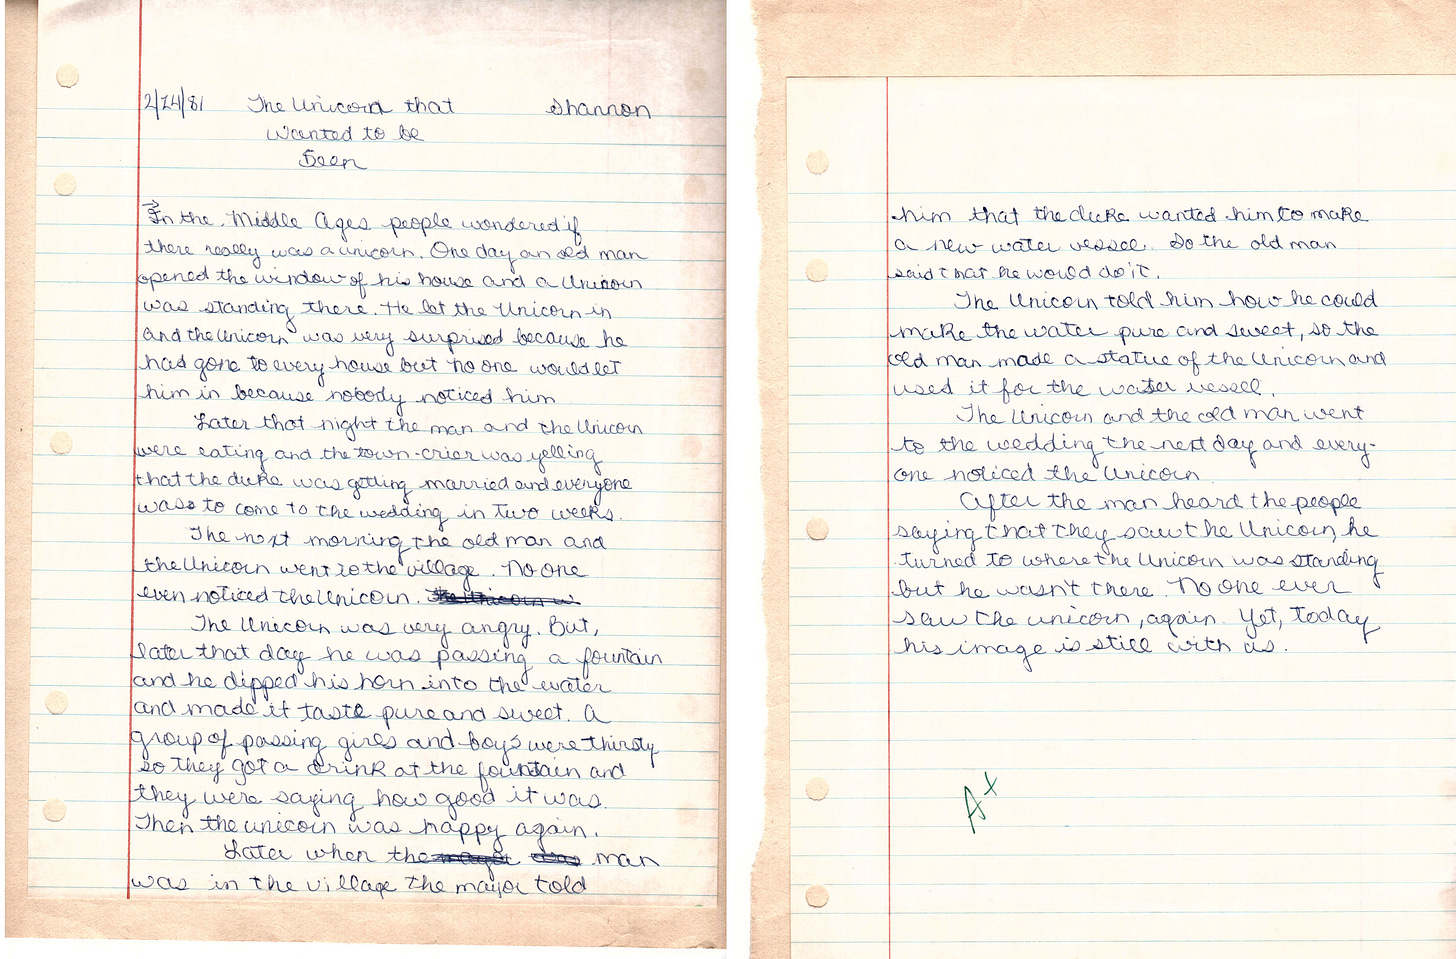 2/14/81 The Unicorn that Shannon
wanted to be
Seen
In the Middle Ages people wondered if
there really was a unicorn. One day an old man
opened the window of his house and a Unicorn
was standing there. He let the Unicorn in
and the Unicorn was very surprised because he
has gone to every house but no one would let
him in because nobody noticed him
Later that night the man and the Unicorn
were eating and the town-crier was yelling
that the duke was getting married and everyone
was to come to the wedding in two weeks.
The next morning the old man and
the Unicorn went to the village. No one
even noticed the Unicorn.
The Unicorn was very angry. But,
later that day he was passing a fountain
and he dipped his horn into the water
and made it taste pure and sweet. A
group of passing girls and boys were thirsty
so they got a drink at the fountain and
they were saying how good it was.
Then the unicorn was happy again.
Later when the man
was in the village the major told
him that the duke wanted him to make
a new water vessel. So the old man
said that he would do it.
The Unicorn told him how he could
make the water pure and sweet, so the
old man made a statue of the Unicorn and
used it for the water vessel.
The Unicorn and the old man went
to the wedding the next day and every-
one noticed the Unicorn
After the man heard the people
saying that they saw the Unicorn, he
turned to where the Unicorn was standing
but he wasn't there. No one ever
saw the unicorn, again. Yet, today
his image is still with us.
A+